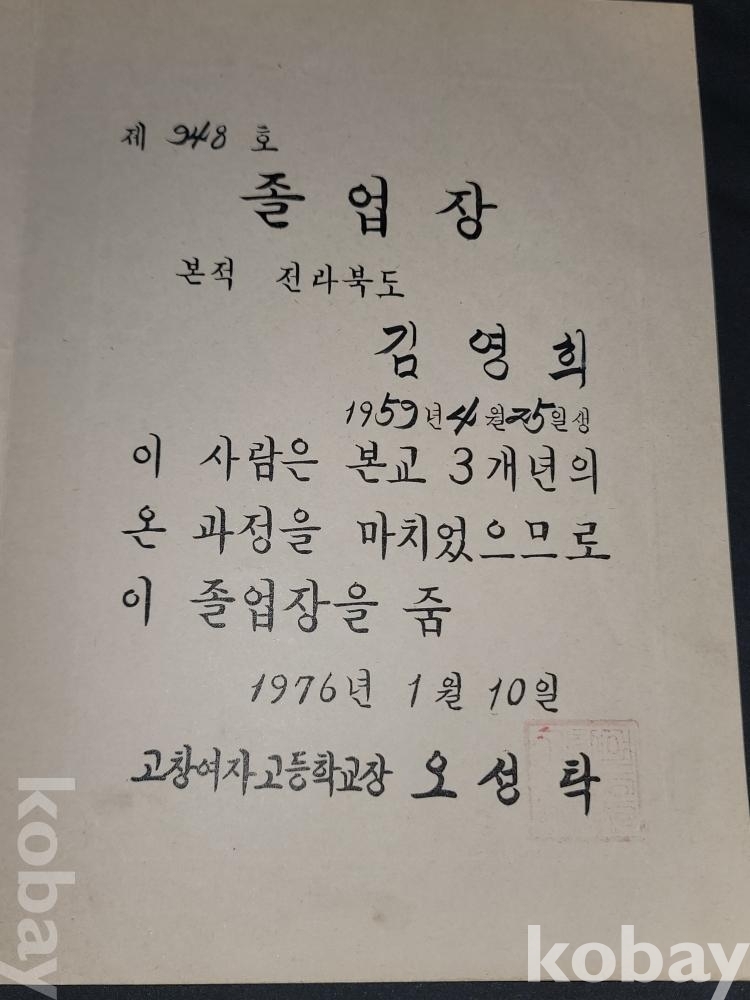 제 948 호
졸 업 장
본적 전라북도
김 영 희
1959년 4월 25일생
이 사람은 본교 3개년의
온 과정을 마치었으므로
이 졸업장을 줌
1976년 1월 10일
고창여자고등학교장 오 성 탁
kobay
kobay